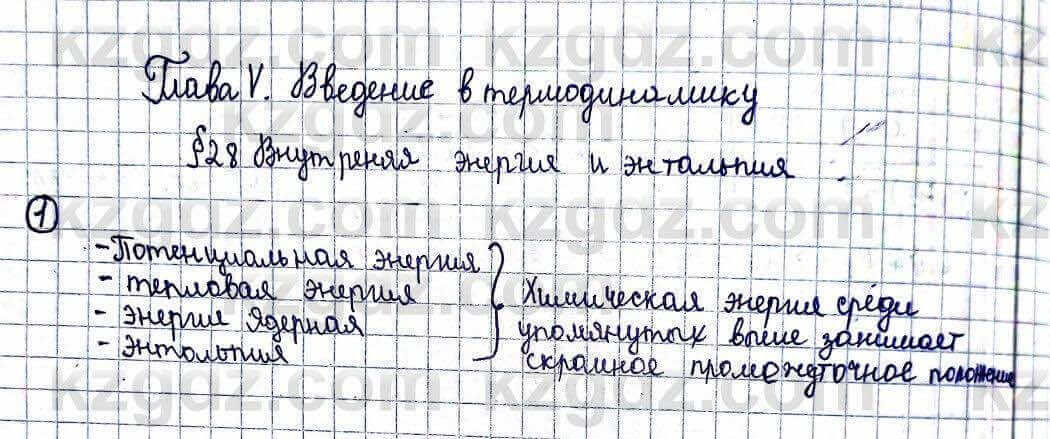 Глава V. Введение в термодинамику
§28 Внутреняя энергия и энтальпия
1
- Потенциальная энергия
- тепловая энергия
- энергия ядерная
- энтольпия
Химическая энергия среди
упомянутых выше занимает
скрамное промежуточное положение
kzgdz.com